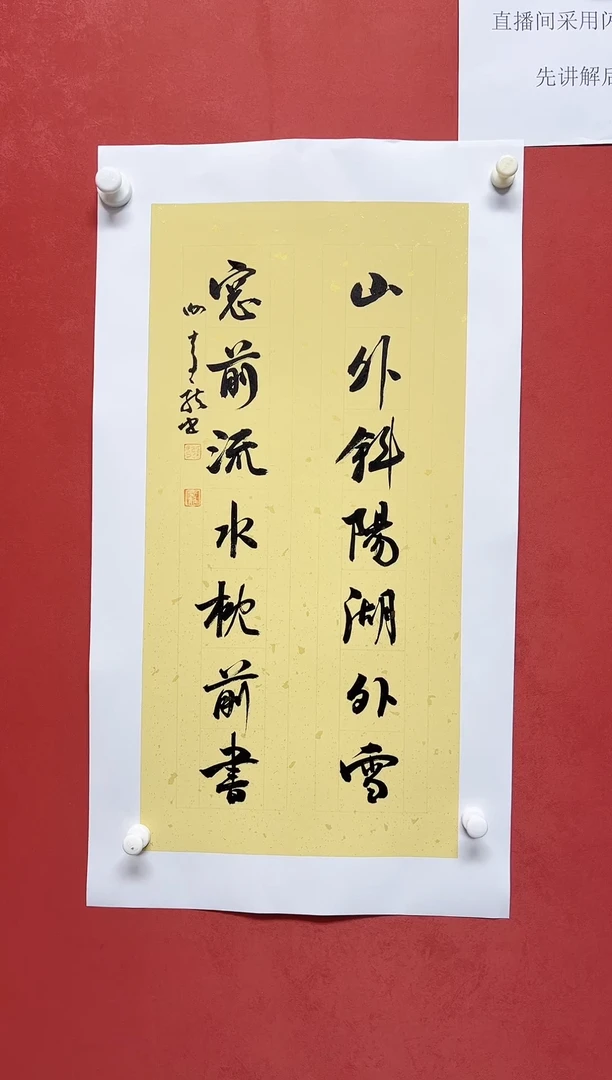 直播间采用闪
先讲解后
山外斜陽湖外雪
窓前流水枕前書